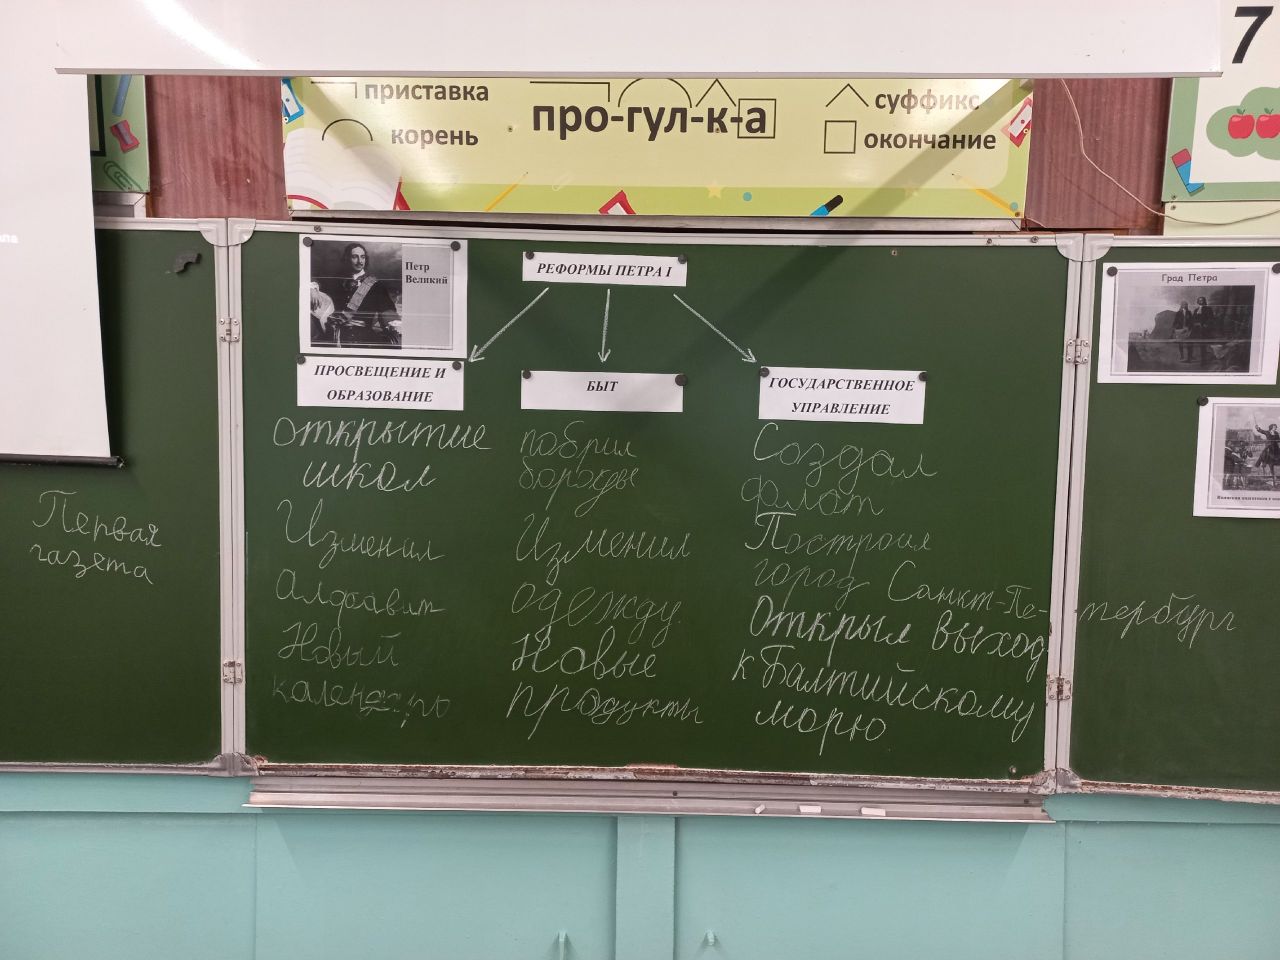 приставка
корень
про-гул-к-а
суффикс
окончание
7
Петр
Великий
РЕФОРМЫ ПЕТРА I
Град Петра
ПРОСВЕЩЕНИЕ И
ОБРАЗОВАНИЕ
БЫТ
ГОСУДАРСТВЕННОЕ
УПРАВЛЕНИЕ
Первая
газета
Открытие
школ
Изменил
алфавит
Новый
календарь
побрил
бороды
Изменил
одежду
Новые
продукты
Создал
флот
Построил
город Санкт-Пе-тербург
Открыл выход
к Балтийскому
морю